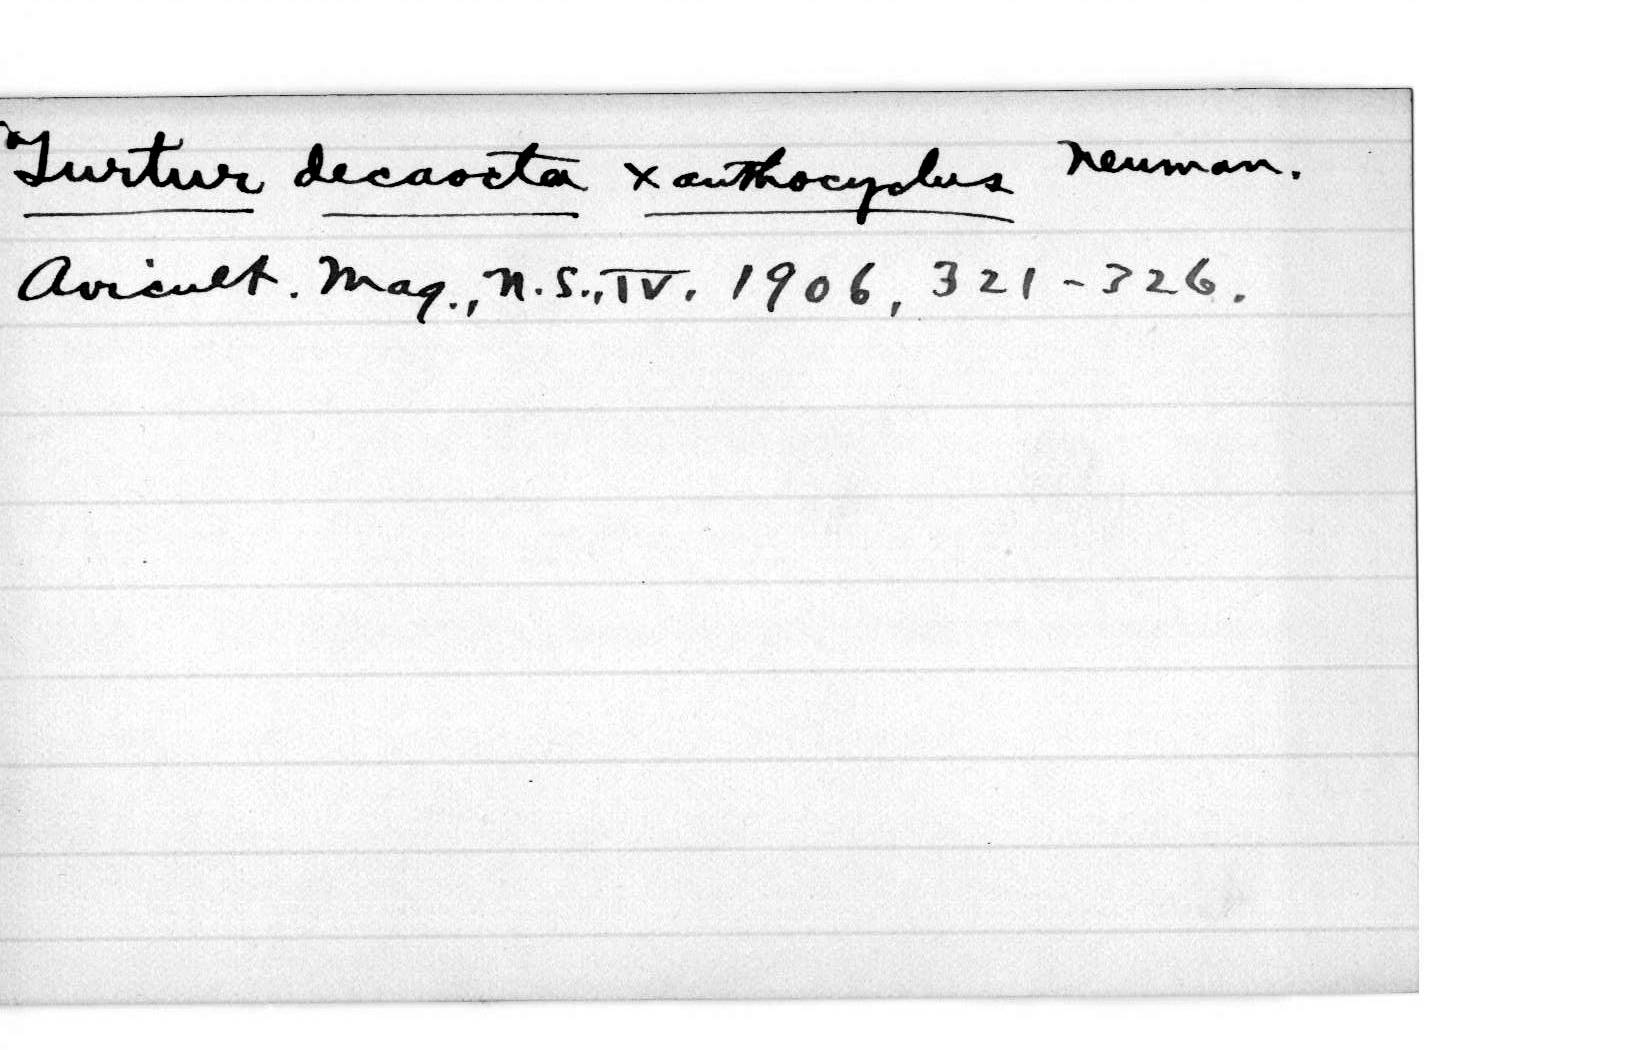 Turtur decaocta xanthocyclus Neuman.
Avicult. Mag., N.S., IV. 1906, 321-326.